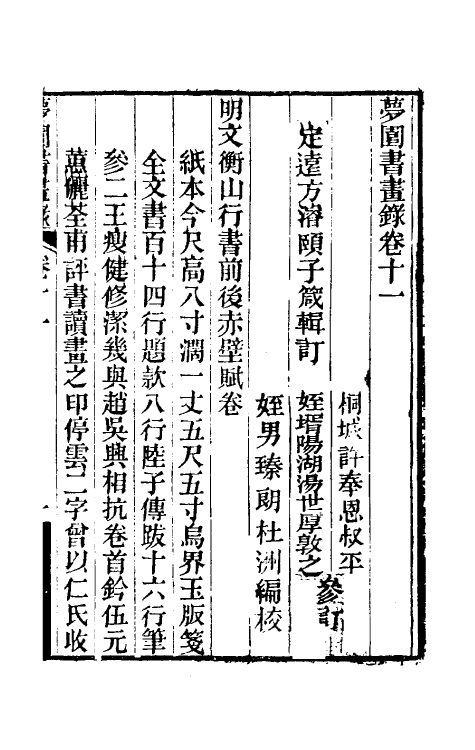 夢園書畫錄卷十一
桐城許奉恩叔平
定遠方濬頤子箴輯訂
姪壻陽湖湯世厚敦之
參訂
姪男臻朗杜洲編校
明文衡山行書前後赤壁賦卷
紙本今尺高八寸濶一丈五尺五寸烏界玉版箋
全文書百十四行題款八行陸子傳跋十六行筆
參二王瘦健修潔幾與趙吳興相抗卷首鈐伍元
蕙儷荃甫評書讀畫之印停雲二字曾以仁氏收
夢園書畫錄
卷十一
一